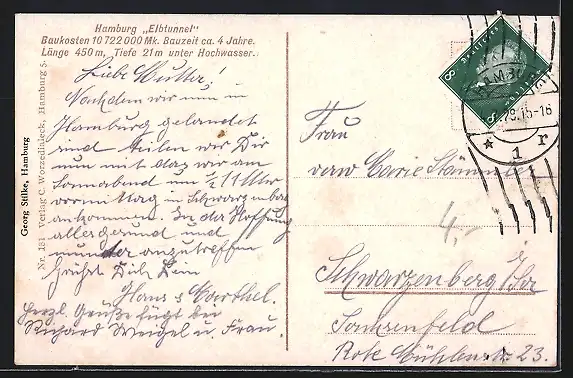 Hamburg „Elbtunnel"
Baukosten 10 722 000 Mk. Bauzeit ca. 4 Jahre.
Länge 450 m, Tiefe 21 m unter Hochwasser.
Georg Stilke, Hamburg
Nr. 131 Verlag C. Worzedialeck, Hamburg 5.
Liebe Mutter!
Nachdem wir nun in
Hamburg gelandet
sind teilen wir Dir
nun mit daß wir am
Sonnabend um ½ 11 Uhr
vormittag in Schwarzenberg
ankommen. In der Hoffnung
alles gesund und
munter anzutreffen
Grüßt Dich Dein
Hans &
Herzl. Grüße fügt bei
Richard Weigel u. Frau.
8
8
15-16
* 1 r
Frau
verw Marie
4,-
Schwarzenberg i/Sa
Sachsenfeld
Rote Mühlenstr. 23.